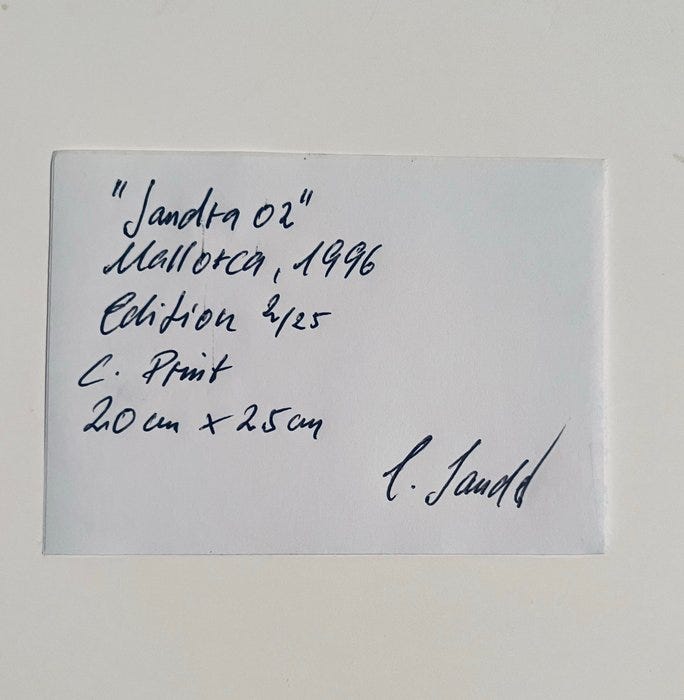 "Sandra 02"
Mallorca, 1996
Edition 2/25
C. Print
20 cm x 25 cm